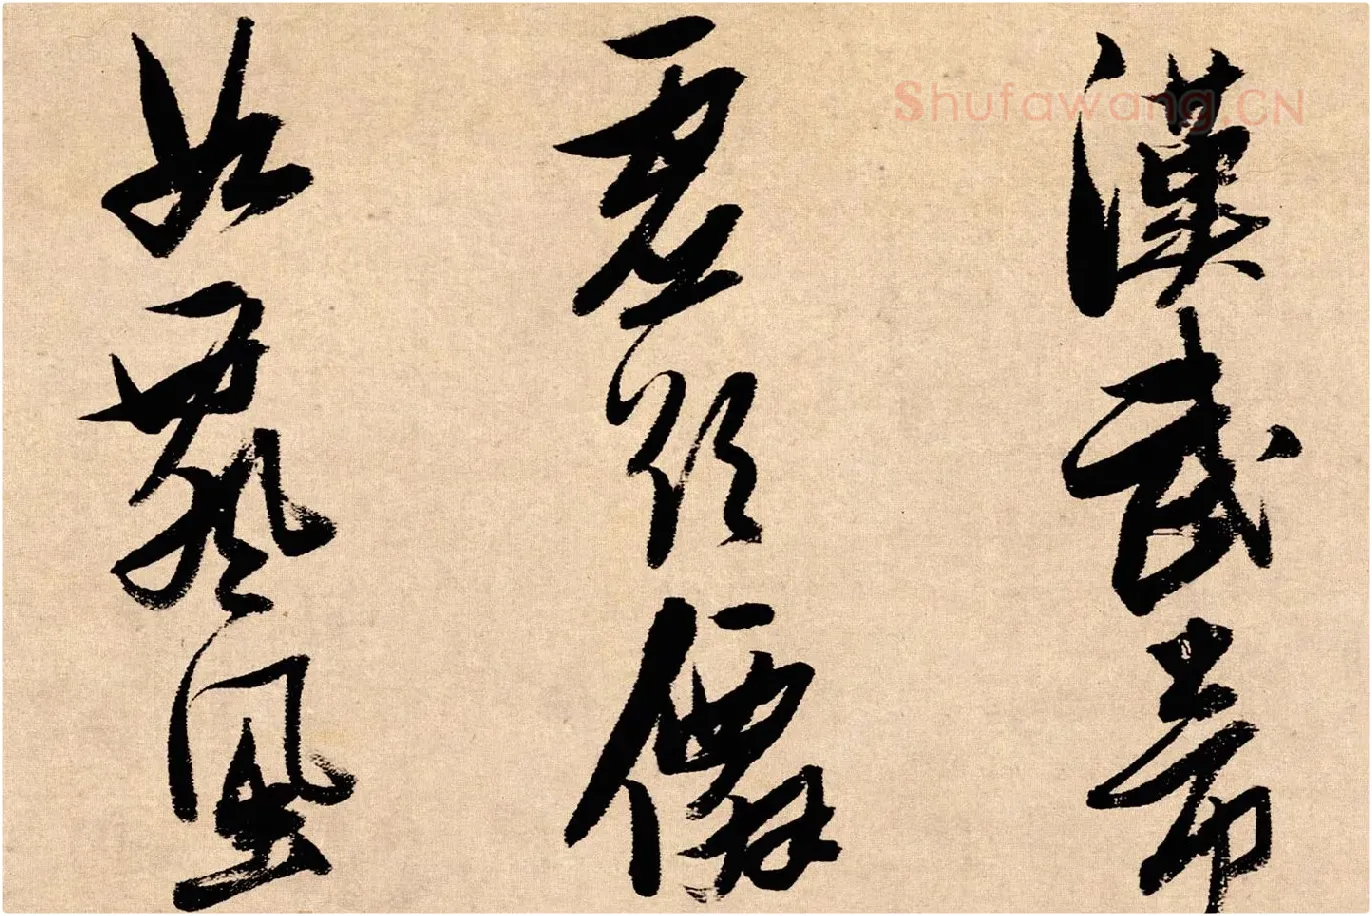 Shufawang.CN
漢武帝
僊
如飄風